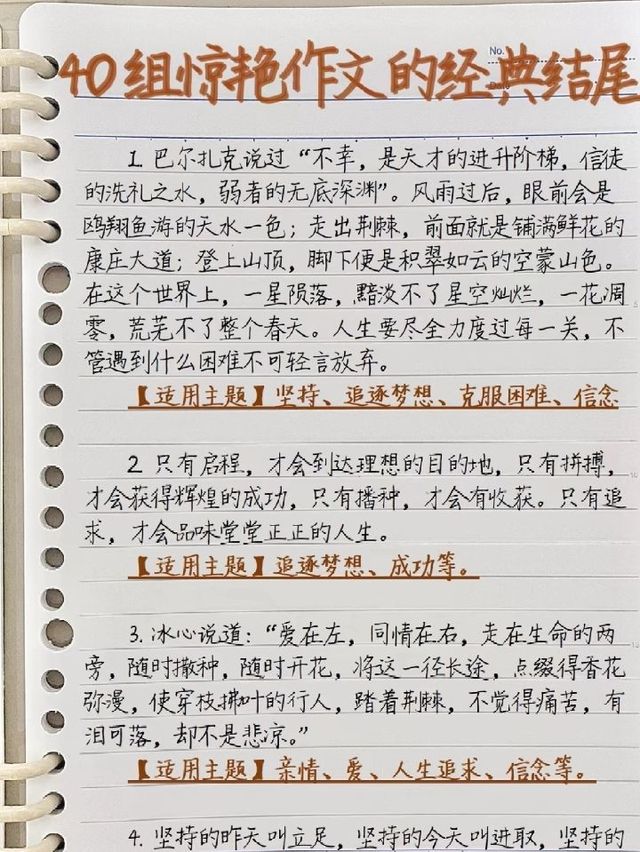 No.
40组惊艳作文的经典结尾
1. 巴尔扎克说过“不幸，是天才的进升阶梯，信徒
的洗礼之水，弱者的无底深渊”。风雨过后，眼前会是
鸥翔鱼游的天水一色；走出荆棘，前面就是铺满鲜花的
康庄大道；登上山顶，脚下便是积翠如云的空蒙山色。
在这个世界上，一星陨落，黯淡不了星空灿烂，一花凋
零，荒芜不了整个春天。人生要尽全力度过每一关，不
管遇到什么困难不可轻言放弃。
【适用主题】坚持、追逐梦想、克服困难、信念
2 只有启程，才会到达理想的目的地，只有拼搏，
才会获得辉煌的成功，只有播种，才会有收获。只有追
求，才会品味堂堂正正的人生。
【适用主题】追逐梦想、成功等。
3. 冰心说道：“爱在左，同情在右，走在生命的两
旁，随时撒种，随时开花，将这一径长途，点缀得香花
弥漫，使穿枝拂叶的行人，踏着荆棘，不觉得痛苦，有
泪可落，却不是悲凉。”
【适用主题】亲情、爱、人生追求、信念等。
4. 坚持的昨天叫立足，坚持的今天叫进取，坚持的